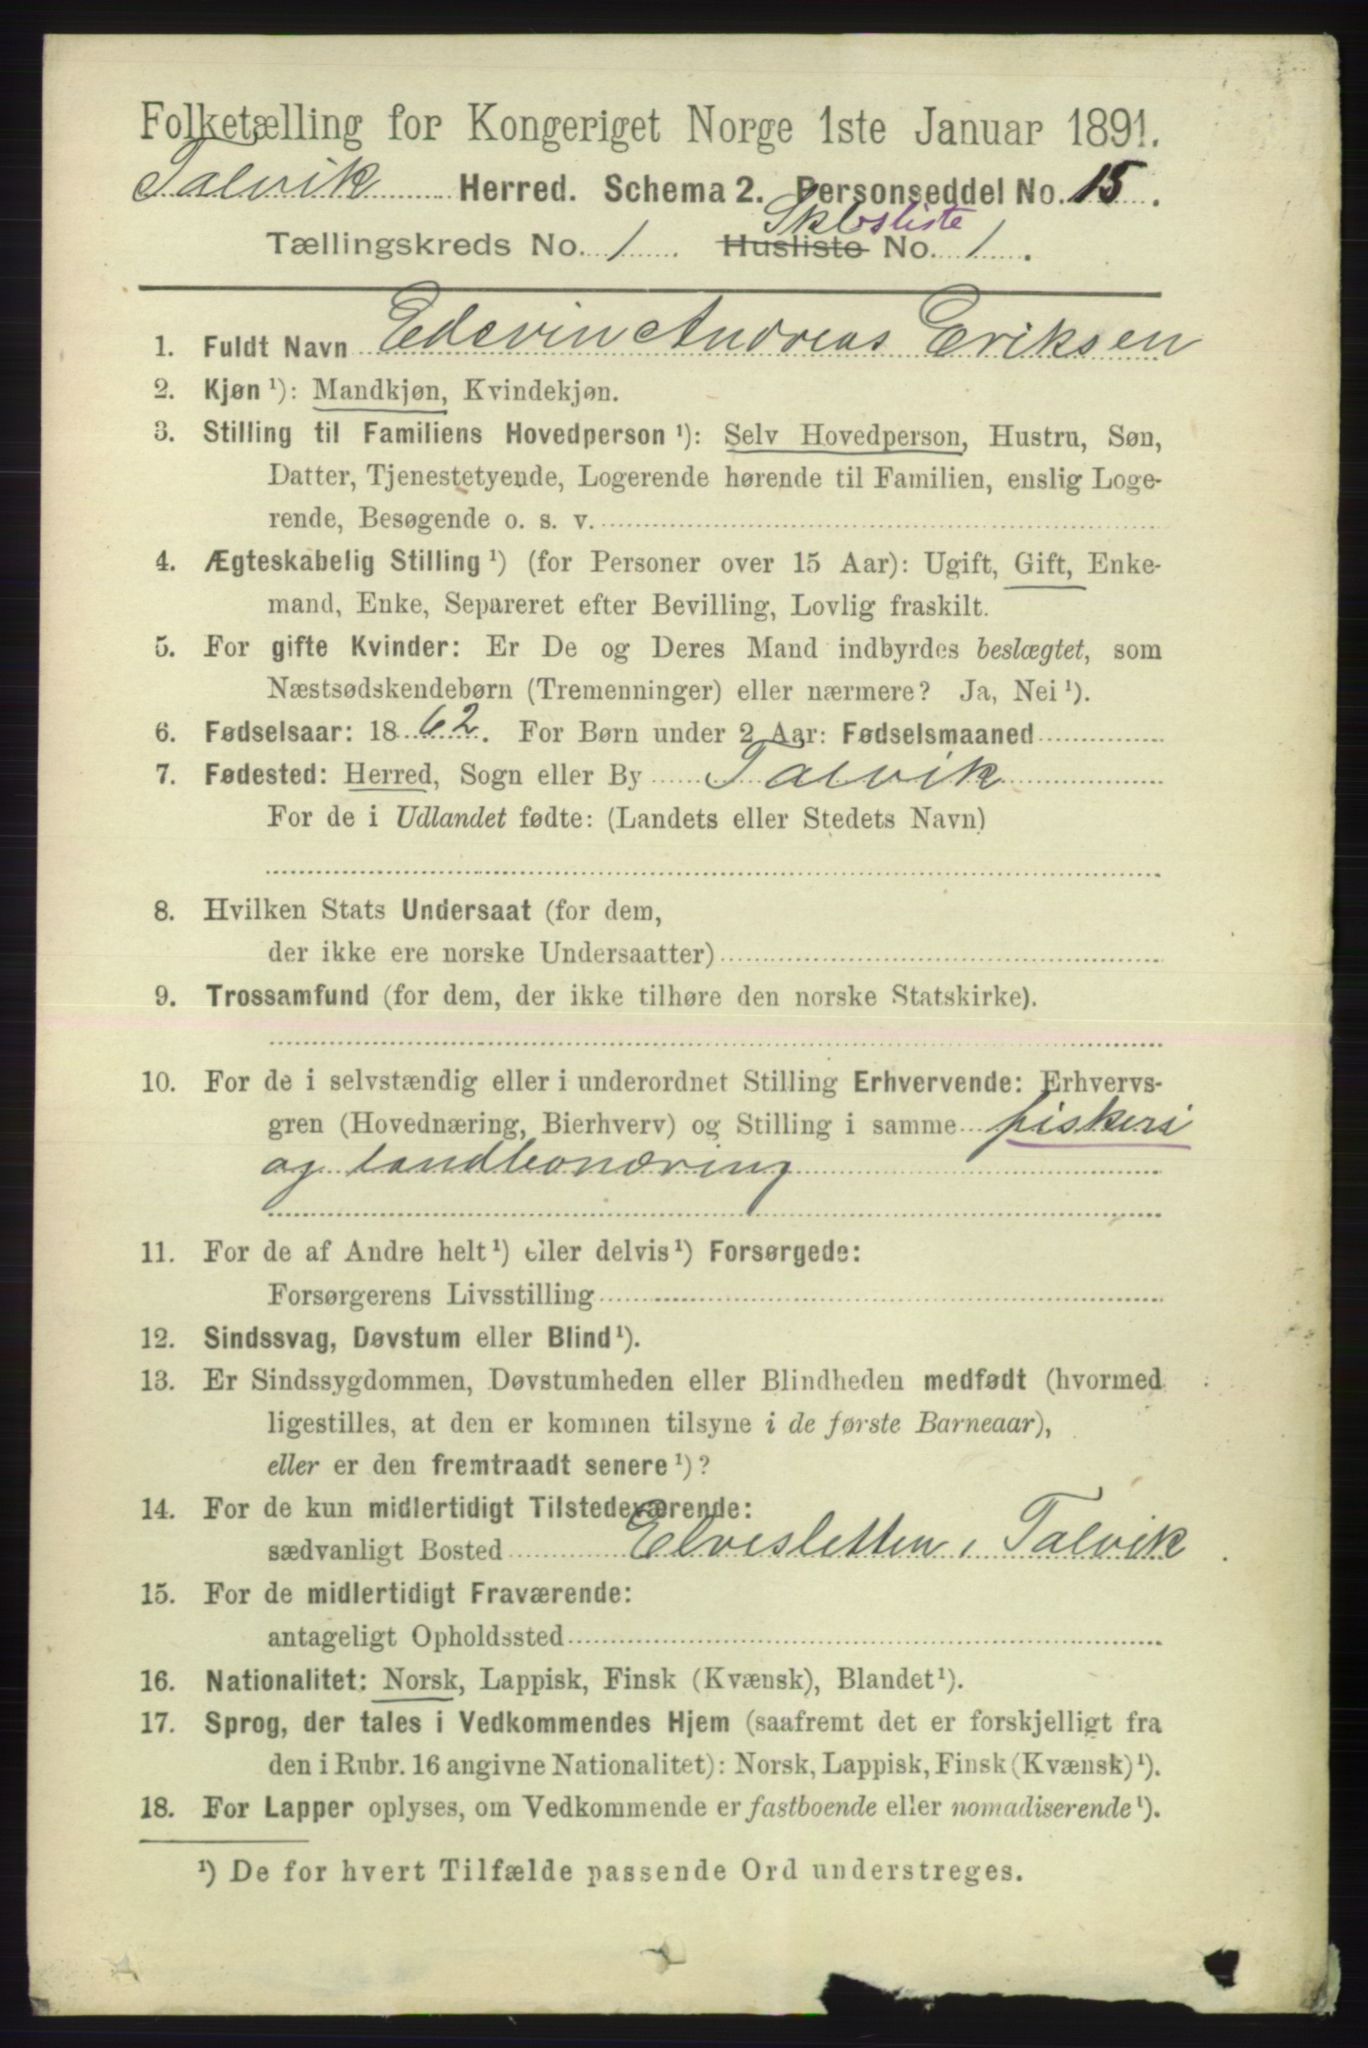 Folketælling for Kongeriget Norge 1ste Januar 1891.
Talvik Herred. Schema 2. Personseddel No. 15.
Skbsliste
Tællingskreds No. 1 Husliste No. 1.
1. Fuldt Navn Edevin Andreas Eriksen
2. Kjøn ¹): Mandkjøn, Kvindekjøn.
3. Stilling til Familiens Hovedperson ¹): Selv Hovedperson, Hustru, Søn,
Datter, Tjenestetyende, Logerende hørende til Familien, enslig Loge-
rende, Besøgende o. s. v.
4. Ægteskabelig Stilling ¹) (for Personer over 15 Aar): Ugift, Gift, Enke-
mand, Enke, Separeret efter Bevilling, Lovlig fraskilt.
5. For gifte Kvinder: Er De og Deres Mand indbyrdes beslægtet, som
Næstsødskendebørn (Tremenninger) eller nærmere? Ja, Nei ¹).
6. Fødselsaar: 1862. For Børn under 2 Aar: Fødselsmaaned
7. Fødested: Herred, Sogn eller By Talvik
For de i Udlandet fødte: (Landets eller Stedets Navn)
8. Hvilken Stats Undersaat (for dem,
der ikke ere norske Undersaatter)
9. Trossamfund (for dem, der ikke tilhøre den norske Statskirke).
10. For de i selvstændig eller i underordnet Stilling Erhvervende: Erhvervs-
gren (Hovednæring, Bierhverv) og Stilling i samme fiskeri
og landbonæring
11. For de af Andre helt ¹) eller delvis ¹) Forsørgede:
Forsørgerens Livsstilling
12. Sindssvag, Døvstum eller Blind ¹).
13. Er Sindssygdommen, Døvstumheden eller Blindheden medfødt (hvormed
ligestilles, at den er kommen tilsyne i de første Barneaar),
eller er den fremtraadt senere ¹)?
14. For de kun midlertidigt Tilstedeværende:
sædvanligt Bosted Elvesletten, Talvik
15. For de midlertidigt Fraværende:
antageligt Opholdssted
16. Nationalitet: Norsk, Lappisk, Finsk (Kvænsk), Blandet ¹).
17. Sprog, der tales i Vedkommendes Hjem (saafremt det er forskjelligt fra
den i Rubr. 16 angivne Nationalitet): Norsk, Lappisk, Finsk (Kvænsk) ¹).
18. For Lapper oplyses, om Vedkommende er fastboende eller nomadiserende ¹).
¹) De for hvert Tilfælde passende Ord understreges.